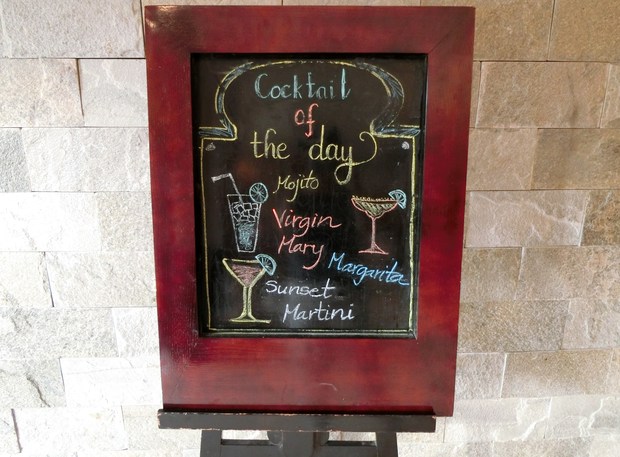 Cocktail
of
the day
Mojito
Virgin
Mary
Margarita
Sunset
Martini